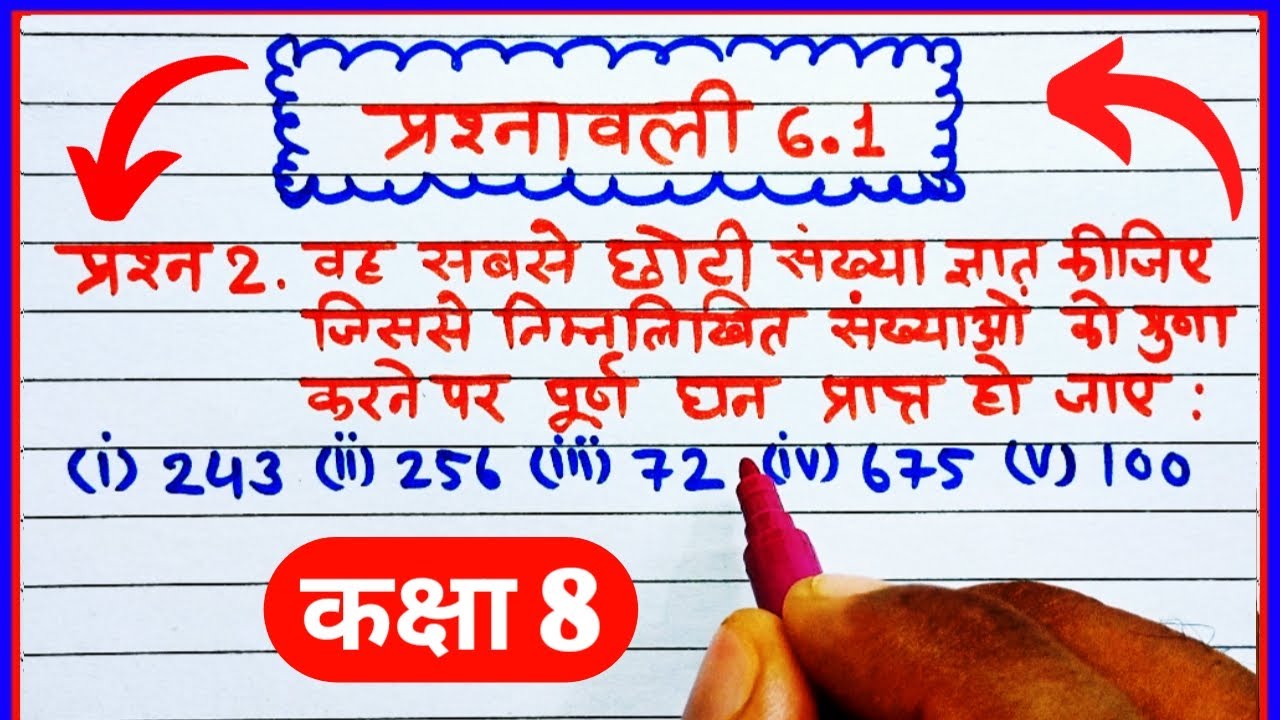 प्रश्नावली 6.1
प्रश्न 2. वह सबसे छोटी संख्या ज्ञात कीजिए
जिससे निम्नलिखित संख्याओं को गुणा
करने पर पूर्ण घन प्राप्त हो जाए :
(i) 243 (ii) 256 (iii) 72 (iv) 675 (v) 100
कक्षा 8